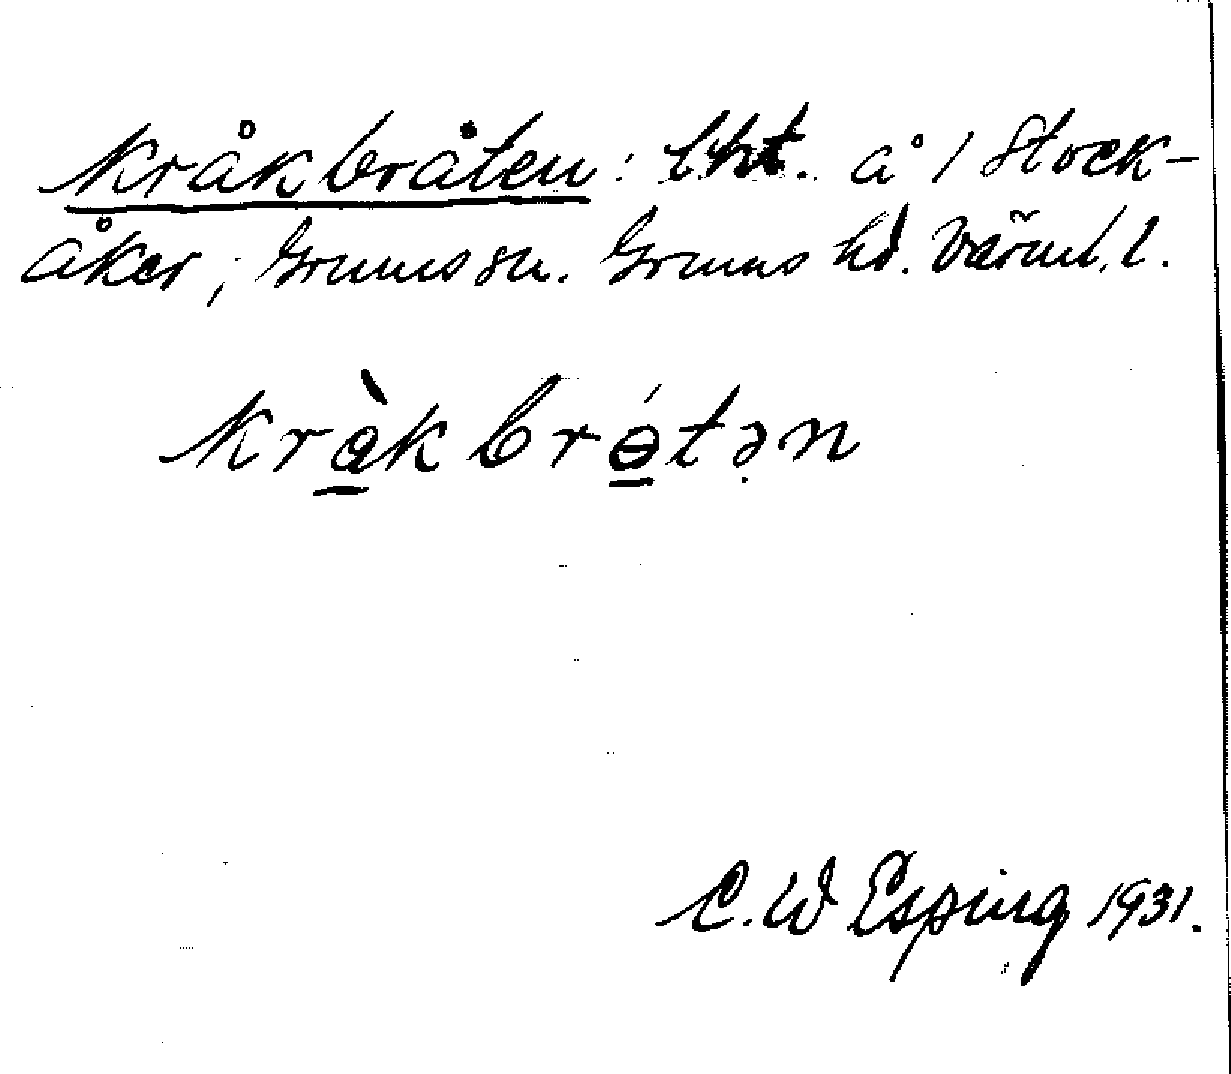 Kråkbråten: lht. å 1 Stock-
åker, Grums sn. Grums hd. Värml. l.
kràkbrǻtən
C. W Esping 1931.